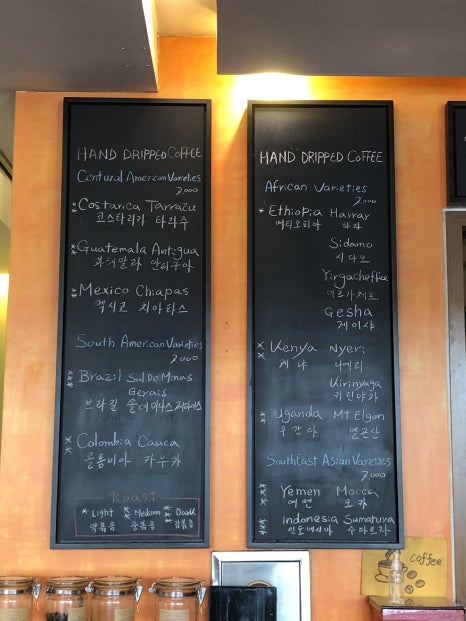 HAND DRIPPED COFFEE
Centural American Varieties
7,000
* Costarica Tarrazu
코스타리카 타라주
* Guatemala Antigua
과테말라 안티구아
* Mexico Chiapas
멕시코 치아파스
South American Varieties
7,000
** Brazil Sul De Minas
Gerais
브라질 술데미나스 제라이스
** Colombia Cauca
콜롬비아 카우카
Roast
* Light ** Medium *** Dark
약볶음 중볶음 강볶음
HAND DRIPPED COFFEE
African Varieties
7,000
* Ethiopia Harrar
에티오피아 하라
Sidamo
시다모
Yirgacheffee
이르가체프
Gesha
게이샤
** Kenya Nyeri
케냐 니에리
Kirinyaga
키린야가
** Uganda Mt Elgon
우간다 엘곤산
SouthEast Asian Varieties
7,000
Yemen Mocca
예멘 모카
Indonesia Sumatura
인도네시아 수마트라
coffee